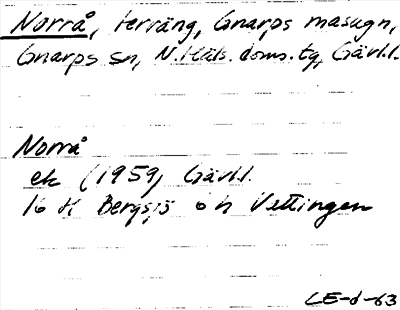 Norrå, terräng, Gnarps masugn,
Gnarps sn, N. Häls. doms. tg, Gävl.l.
Norrå
ek (1959) Gävl.l.
16 H Bergsjö o h Vettingen
CE-d-63